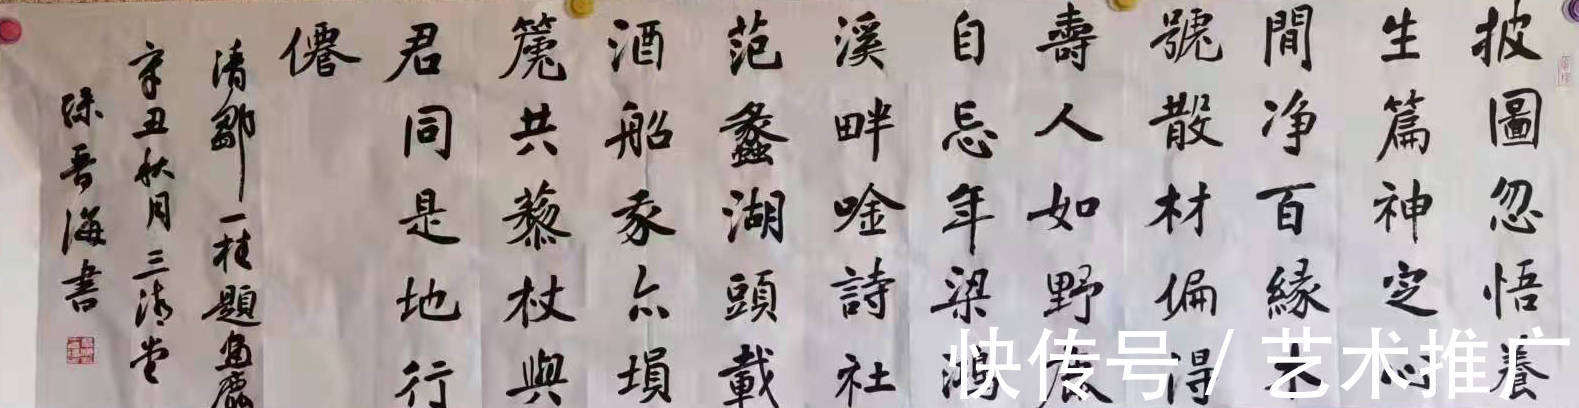 披圖忽悟養
生篇神定心
閒净百緣木
號散材偏得
壽人如野鹿
自忘年梁鴻
溪畔唫詩社
范蠡湖頭載
酒船我亦塤
篪共藜杖與
君同是地行
僊
清鄒一桂題画鹿
辛丑秋月三清堂
孫吾海書
快传号 / 艺术推广